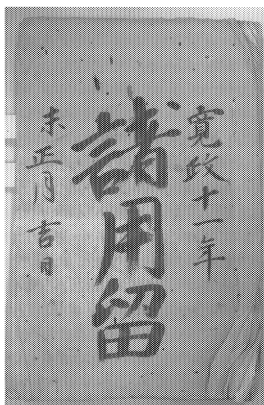 寛政十一年
諸用留
未正月吉日